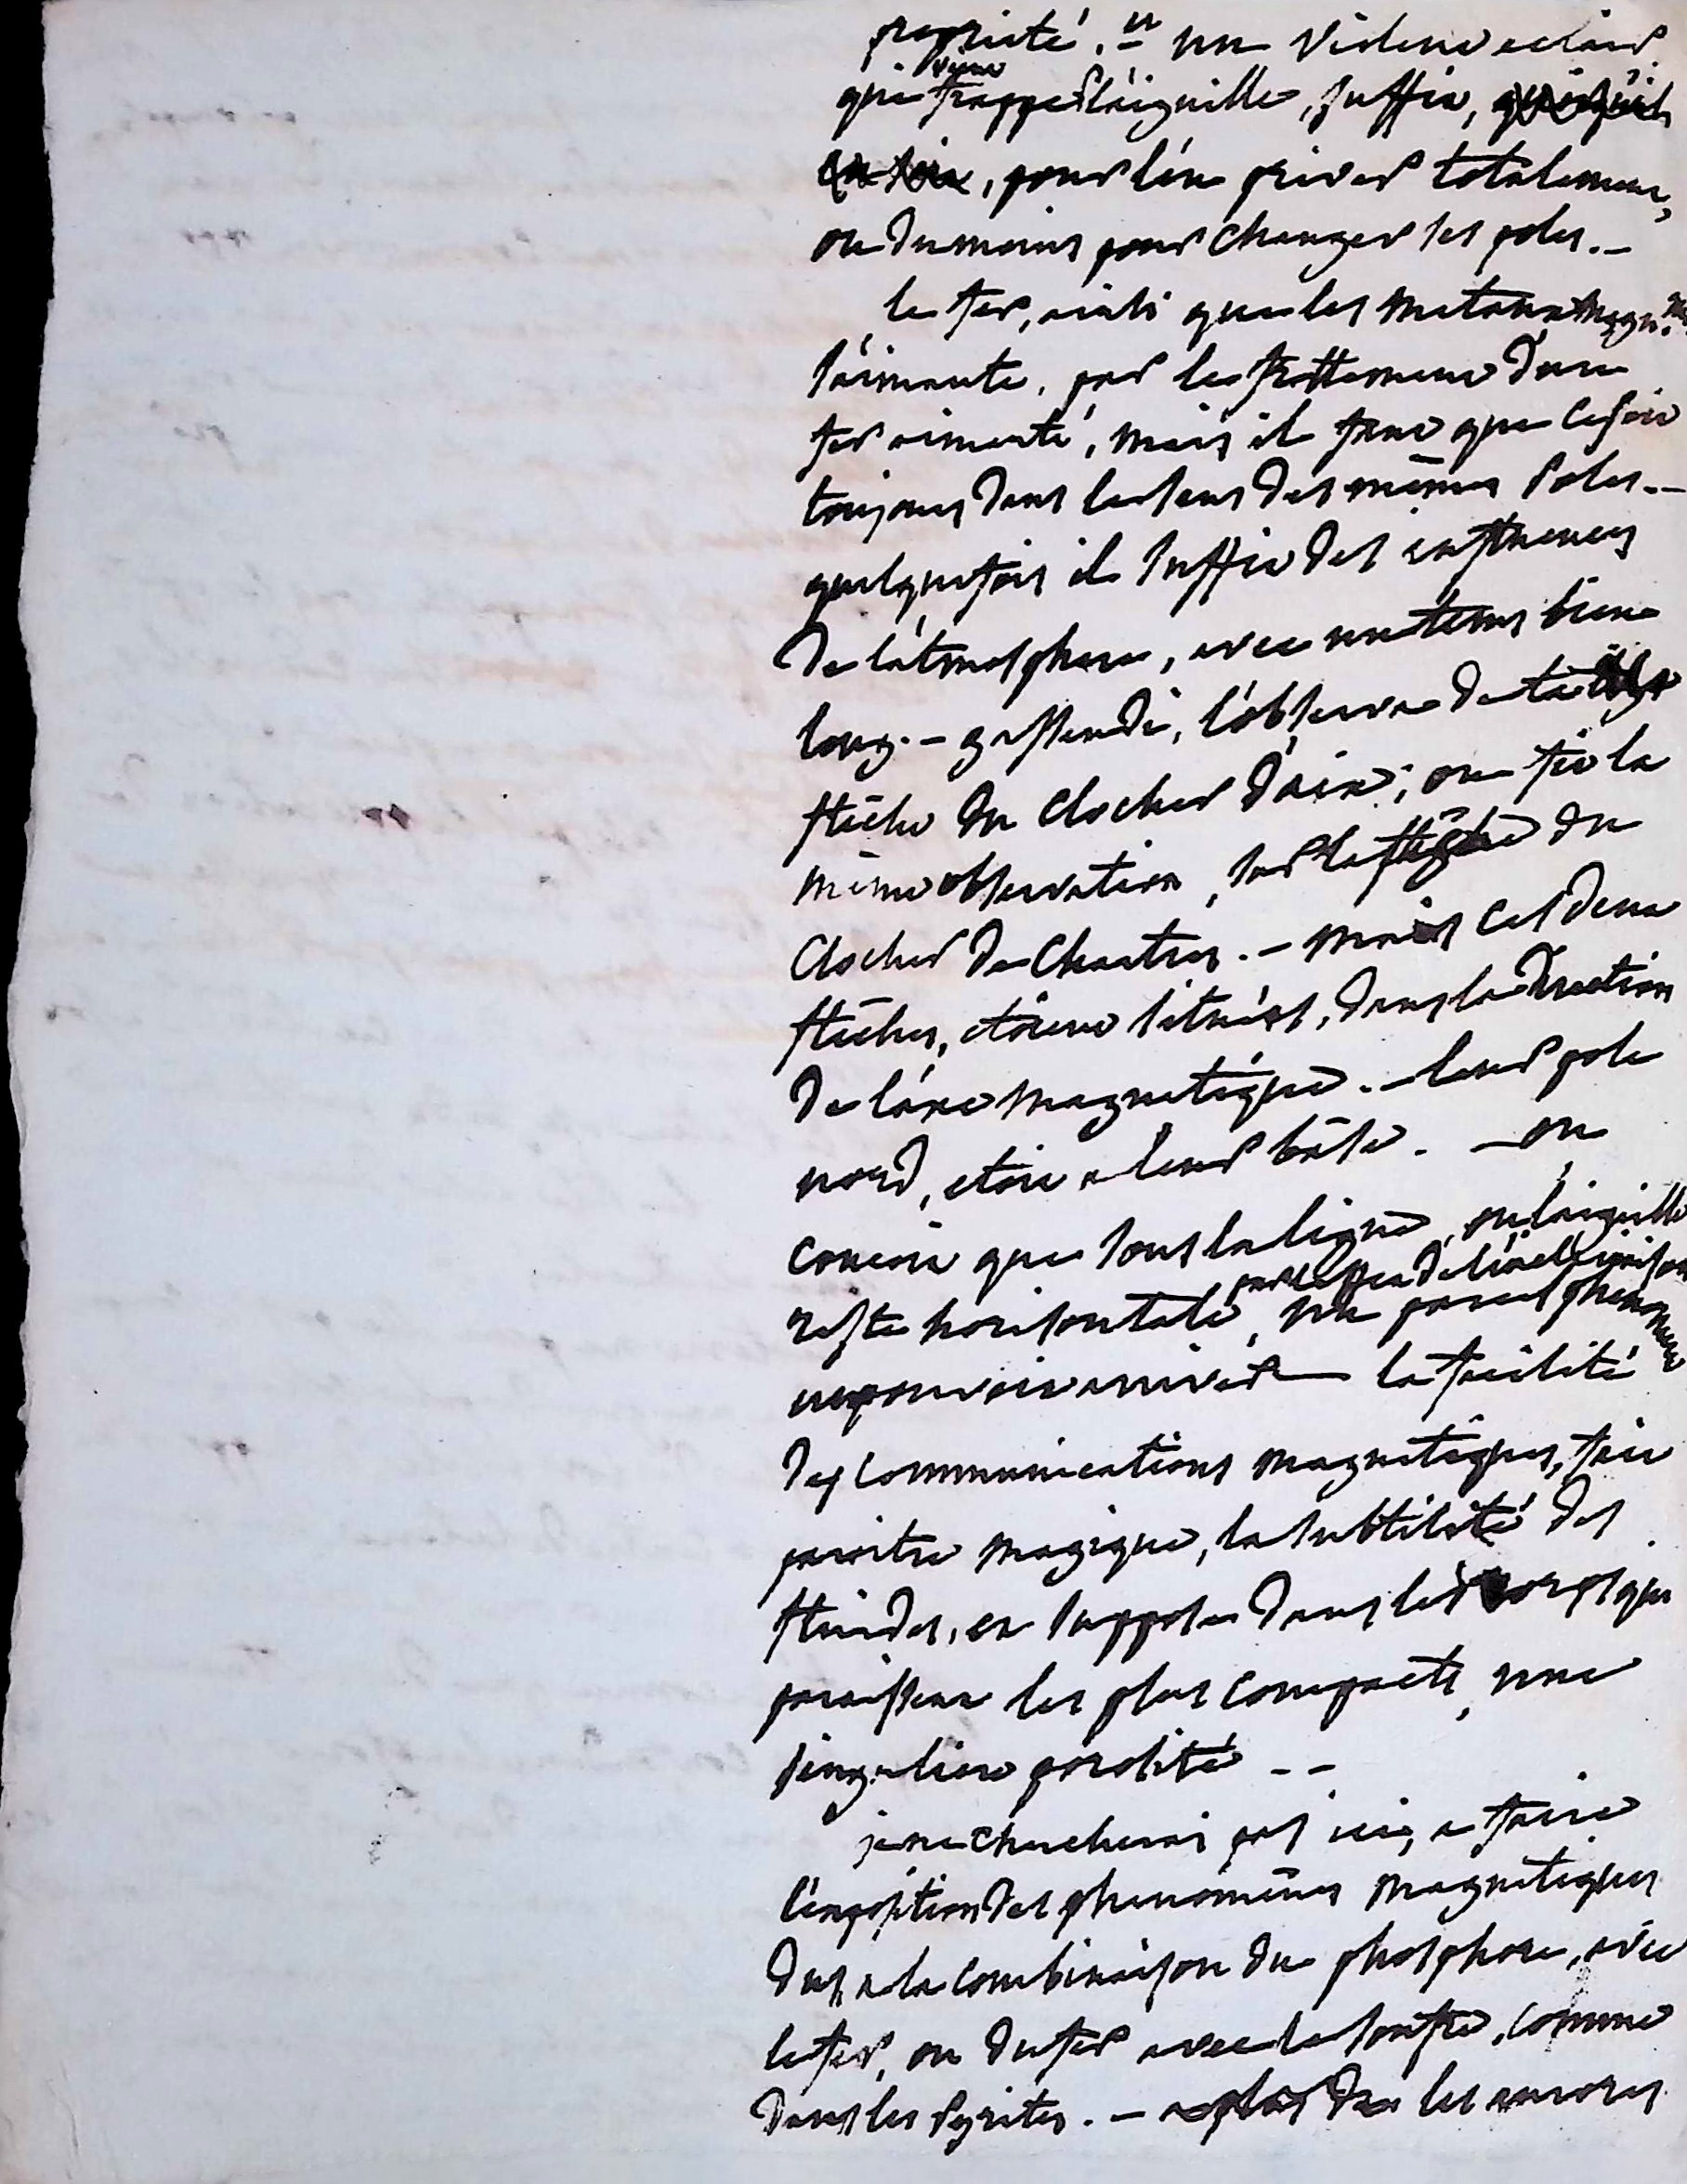 propriété. — un violent eclair
qui frappe l'aiguille, suffit,
, pour l'en priver totalement,
ou du moins pour changer ses poles. —
le fer, ainsi que les metaux magn.
s'aimante, par le frottement d'un
fer aimanté, mais il faut que ce soit
toujours dans le sens des mêmes poles. —
quelquefois il suffit des influences
de l'atmosphere, avec un tems bien
long. — gassendi, l'observa de la
flêche du clocher d'aix; on fit la
même observation, sur la flêche du
clocher de Chartres. — mais ces deux
flêches, etoient situées, dans la direction
de l'axe magnetique. — leur pole
nord, etoit a leur bâse. — on
concoit que sous la ligne, ou l'aiguille
reste horisontale, par l'effet de l'inclinaison un pareil phenomene
ne pouvoit arriver — la facilité
des communications magnetiques, fait
paroitre magique, la subtilité des
fluides, et suppose dans les corps qui
paroissent les plus compacts, une
singuliere porosité — —
je ne chercherai pas ici, a faire
l'exposition des phenomênes magnetiques
dus a la combinaison du phosphore, avec
le fer, ou du fer avec le soufre, comme
dans les pyrites. — les aurores